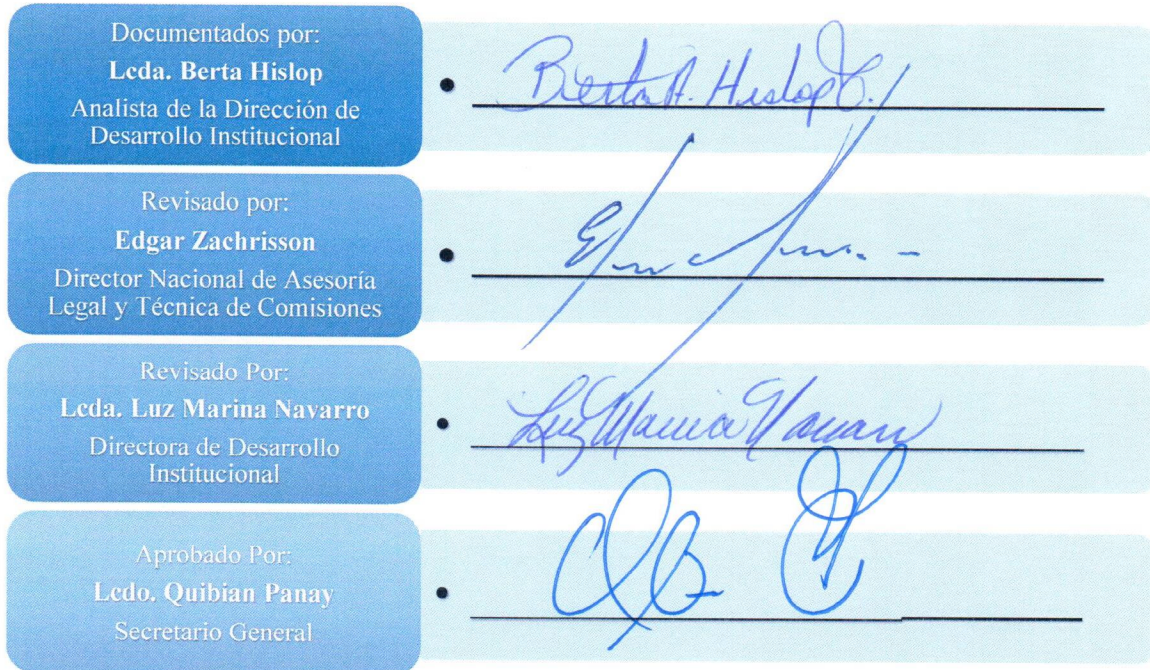 Documentados por:
Lcda. Berta Hislop
Analista de la Dirección de
Desarrollo Institucional
Berta A. Hislop C.
Revisado por:
Edgar Zachrisson
Director Nacional de Asesoría
Legal y Técnica de Comisiones
Revisado Por:
Lcda. Luz Marina Navarro
Directora de Desarrollo
Institucional
Luz Marina Navarro
Aprobado Por:
Lcdo. Quibian Panay
Secretario General